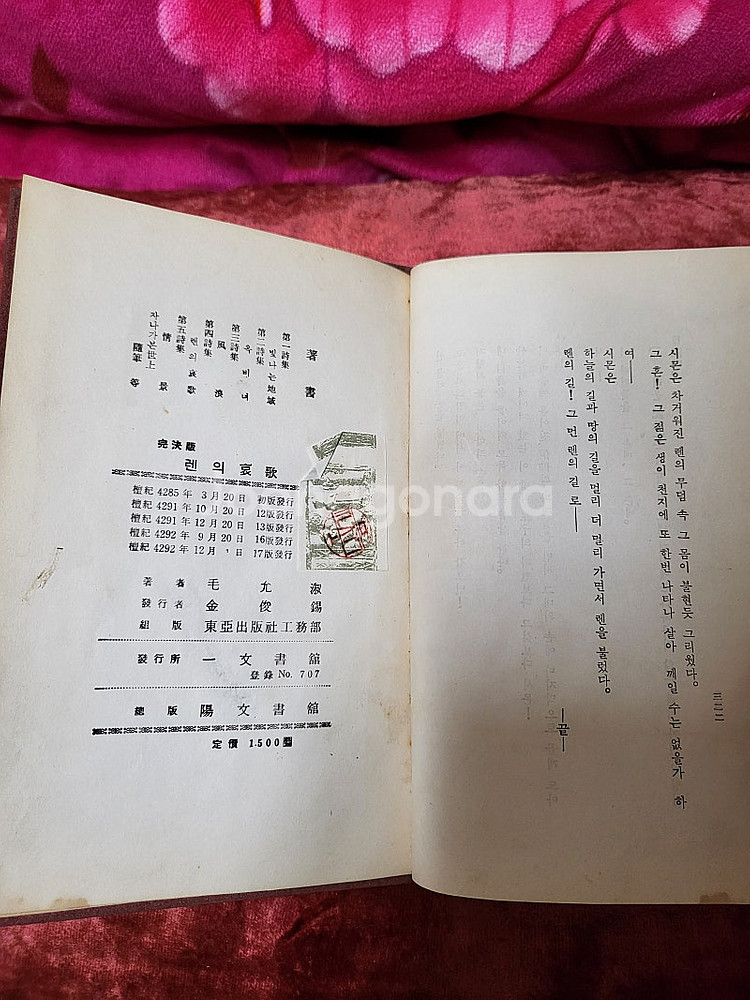 시몬은 차거워진 렌의 무덤 속 그 몸이 불현듯 그리웠다。
그 혼! 그 젊은 생이 천지에 또 한번 나타나 살아 깨일 수는 없을가 하
여——
시몬은
하늘의 길과 땅의 길을 멀리 더 멀리 가면서 렌을 불렀다。
렌의 길! 그 먼 렌의 길로——
—끝—
三二二
著書
第一詩集 빛나는 地域
第二詩集 옥비녀
第三詩集 風浪
第四詩集 렌의 哀歌
第五詩集 情景
지나가본 世上 隨筆 等
完決版
렌의 哀歌
檀紀 4285年 3月 20日 初版發行
檀紀 4291年 10月 20日 12版發行
檀紀 4291年 12月 20日 13版發行
檀紀 4292年 9月 20日 16版發行
檀紀 4292年 12月 1日 17版發行
著者 毛允淑
發行者 金俊錫
組版 東亞出版社工務部
發行所 一文書舘
登錄 No. 707
總版 陽文書舘
定價 1.500圜
gonara